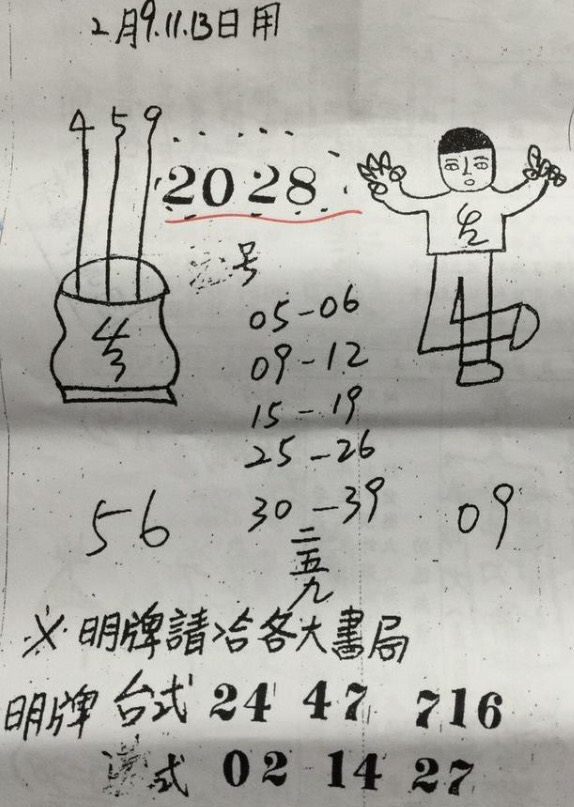 2月9.11.13日用
4 5 9
2028
号
05-06
09-12
15-19
25-26
30-39
二五九
56
09
※明牌請洽各大書局
明牌 台式 24 47 716
式 02 14 27